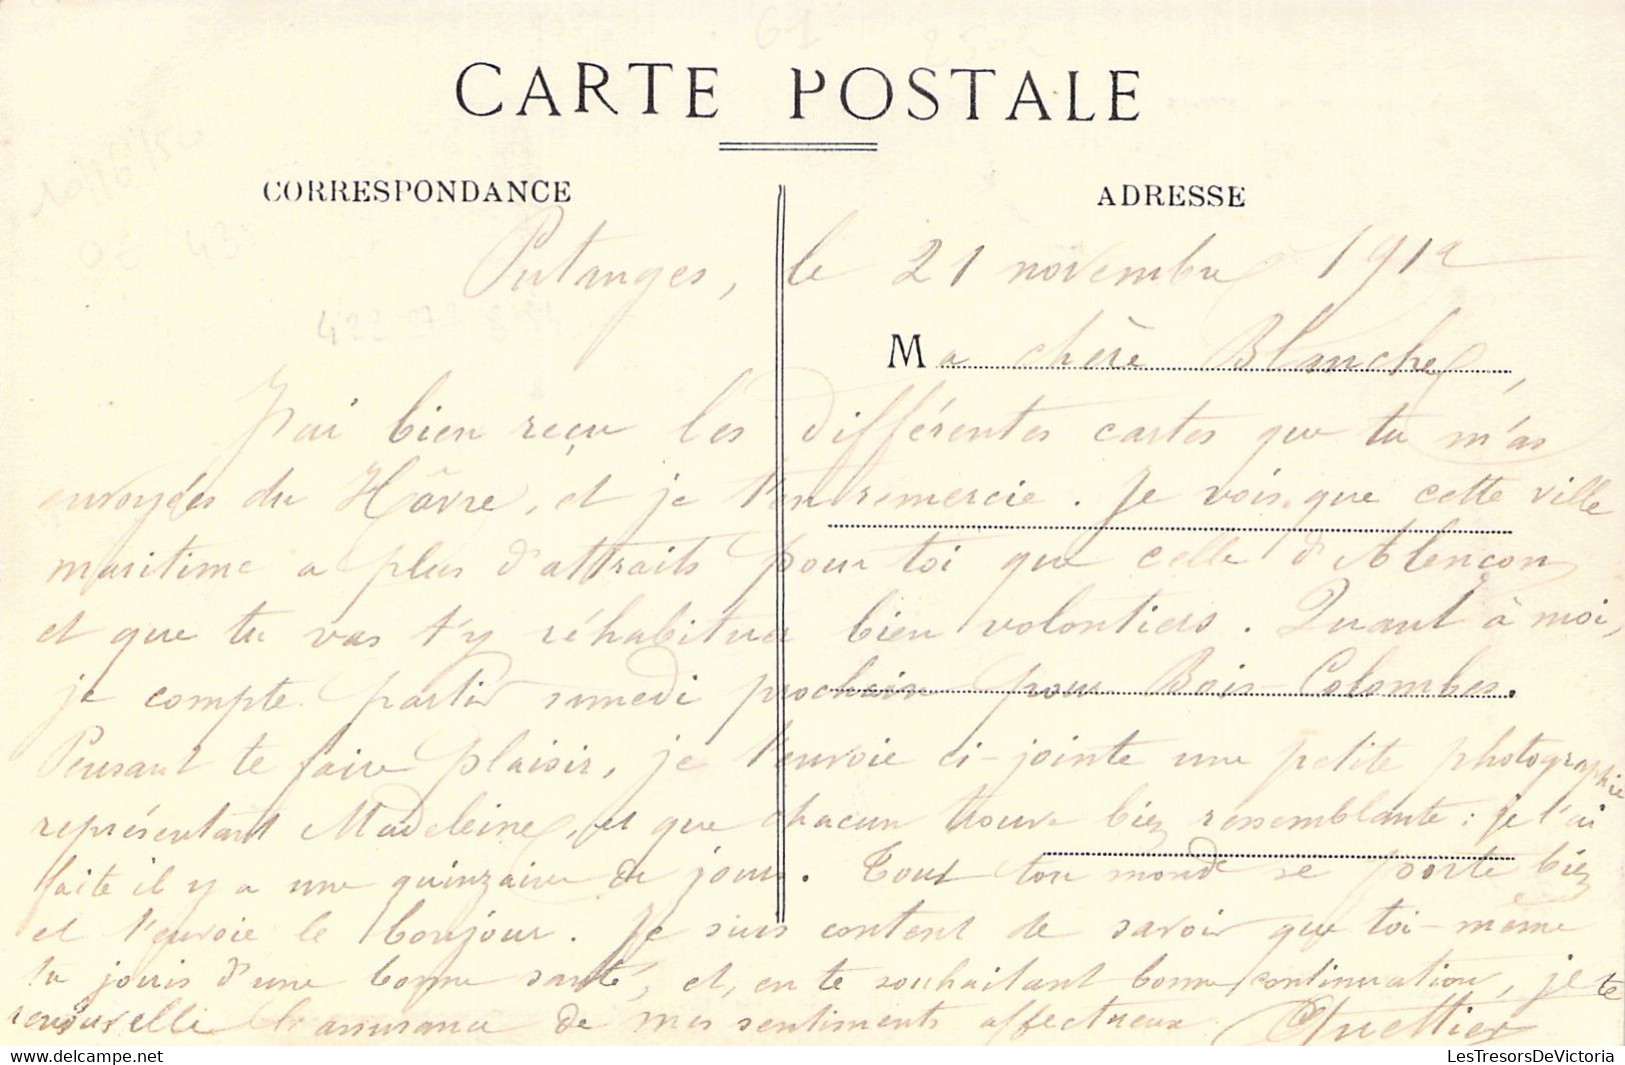 CARTE POSTALE
CORRESPONDANCE
ADRESSE
Putanges, le 21 novembre 1912
Ma chère Blanche,
J'ai bien reçu les différentes cartes que tu m'as
envoyées du Hâvre, et je t'en remercie. Je vois que cette ville
maritime a plus d'attraits pour toi que celle d'Alençon
et que tu vas t'y réhabituer bien volontiers. Quant à moi,
je compte partir samedi prochain pour Bois-Colombes.
Pensant te faire plaisir, je t'envoie ci-jointe une petite photographie
représentant Madeleine, et que chacun trouve bien ressemblante : je l'ai
faite il y a une quinzaine de jours. Tout ton monde se porte bien
et t'envoie le bonjour. Je suis content de savoir que toi-même
tu jouis d'une bonne santé, et, en te souhaitant bonne continuation, je te
renouvelle l'assurance de mes sentiments affectueux.
LesTresorsDeVictoria